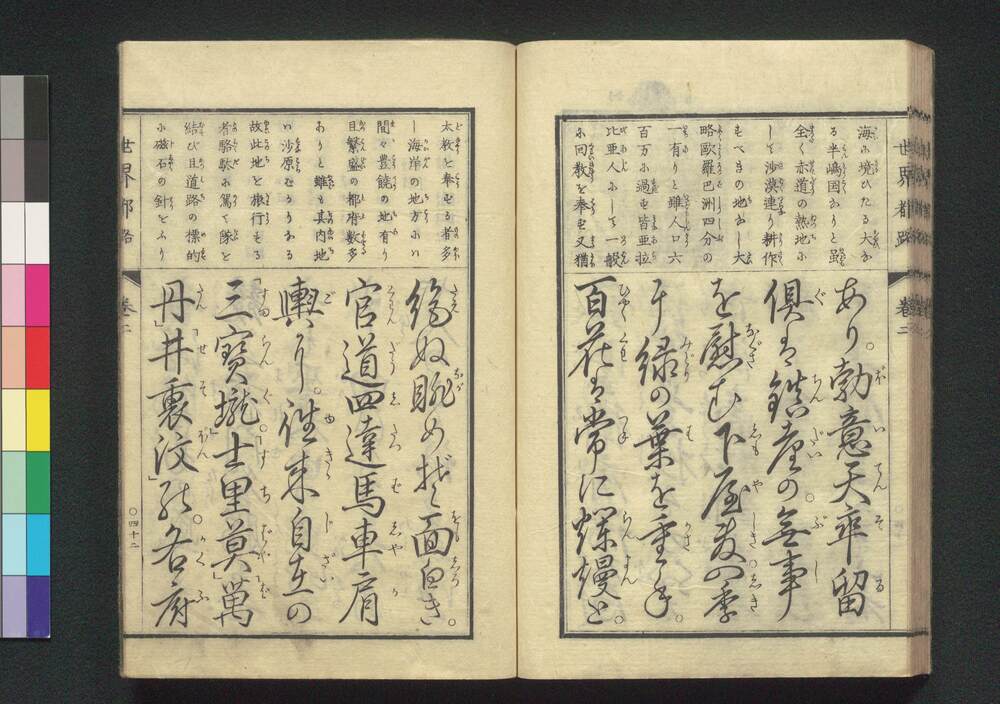 世界都路
巻二
海に境ひたる大な
る半嶋国なりと雖
全く赤道の熱地に
して沙漠連り耕作
すべきの地なし大
略欧羅巴洲四分の
一有りと雖人口六
百万に過ず皆亜拉
比亜人にして一般
に回教を奉ず又猶
あり。勃意天卒留
倶は鎮臺の。無事
を慰む下屋敷。四季
緑の葉を重ね。
百花は常に爛熳と。
太教を奉ずる者多
し海岸の地方には
間々豊饒の地有り
且繁盛の都府数多
ありと雖も其内地
は沙原なるがゆゑ
故此地を旅行する
者駱駝に駕て隊を
結び且道路の標的
に磁石の針を以り
絶ぬ眺めぞ面白き。
官道四達馬車肩
輿。往来自在の
三寳壠「士里莫」萬
丹「井裏汶」。各府
世界都路
巻二
〇四十二